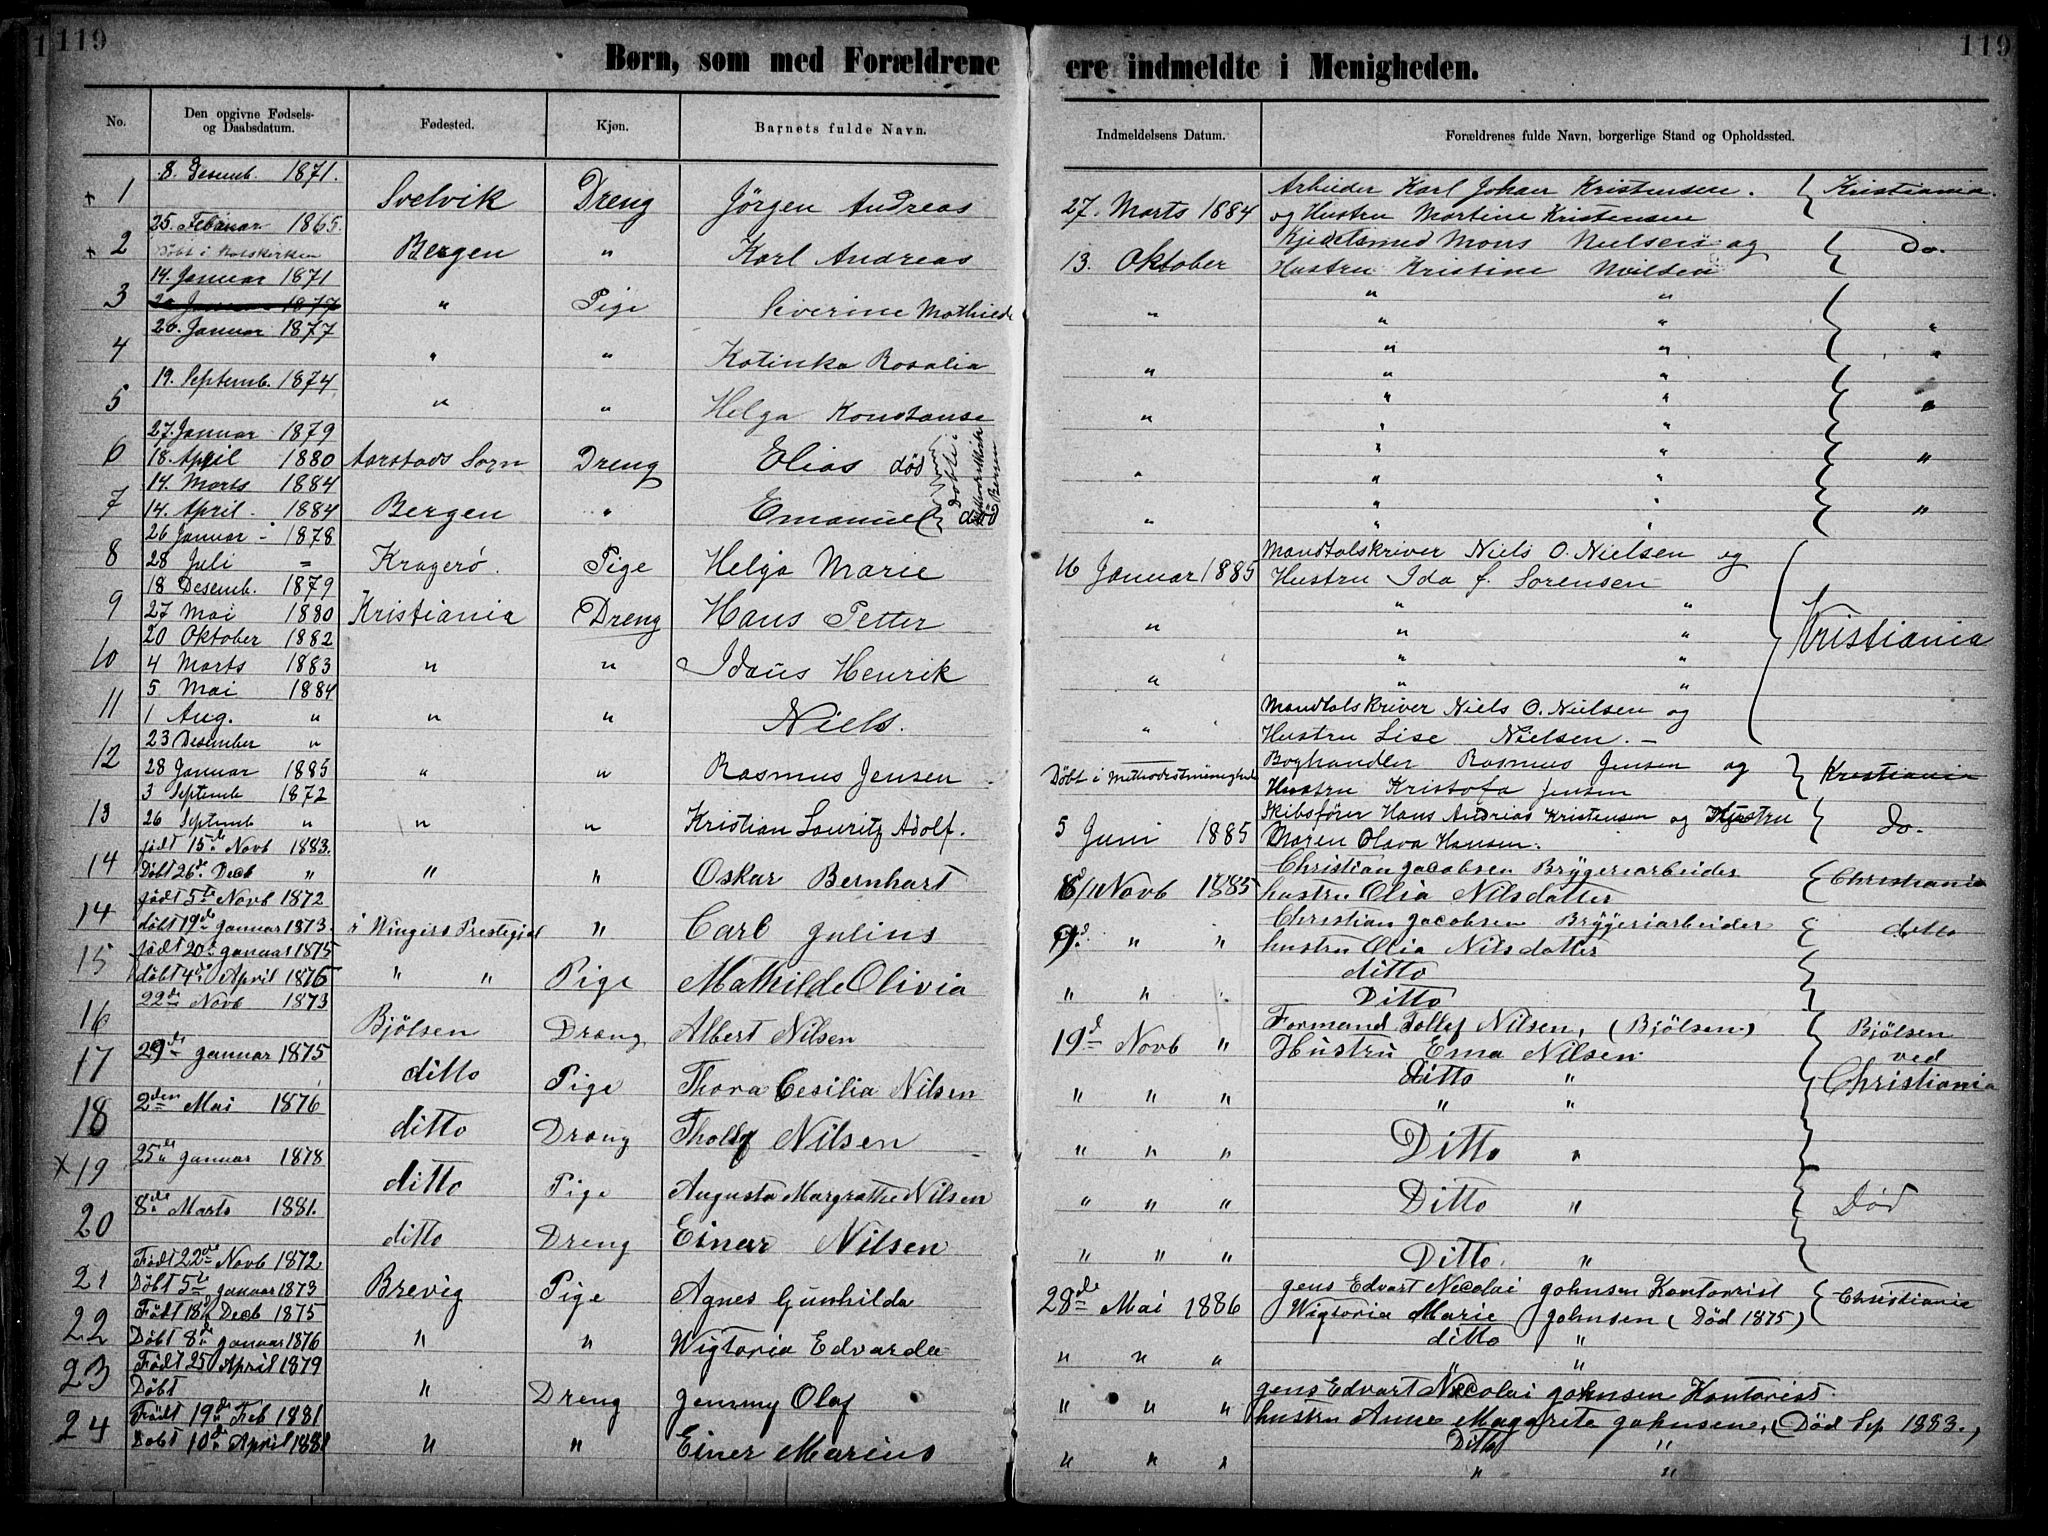 119
119
Børn, som med Forældrene ere indmeldte i Menigheden.
No.
Den opgivne Fødsels- og Daabsdatum.
Fødested.
Kjøn.
Barnets fulde Navn.
Indmeldelsens Datum.
Forældrenes fulde Navn, borgerlige Stand og Opholdssted.
8. Desemb. 1871.
+ 1 Svelvik Dreng Jörgen Andreas 27. Marts 1884
Arbeider Karl Johan Kristensen. Kristiania.
og Hustru Martine Kristensen
25. Februar 1865.
+ 2 Bergen " Karl Andreas 13. Oktober
Kjedelsmed Mons Nielsen og do.
Hustru Kristine Nielsen
14. Januar 1871
3 20 Januar 1877 " Pige Siverine Mathilde " " "
20. Januar 1877
4 " " Katinka Rosalia " " " "
19. Septemb. 1874
5 " " Helga Konstanse " " " "
27. Januar 1879
6 18. April 1880 Aarstads Sogn Dreng Elias död " " " "
14. Marts 1884
7 14. April 1884 Bergen " Emanuel död " " " "
26 Januar 1878
8 28 Juli = Kragerö. Pige Helga Marie 16 Januar 1885
Mandtalskriver Niels O. Nielsen og
Hustru Ida f. Sorensen
18 Desemb. 1879
9 27 Mai 1880 Kristiania Dreng Hans Petter " " " Kristiania
20 Oktober 1882
10 4 Marts 1883 " " Idaus Henrik " " "
5 Mai 1884
11 1 Aug. " " " Niels. "
Mandtalskriver Niels O. Nielsen og
Hustru Lise Nielsen. —
23 Desember "
12 28 Januar 1885 " " Rasmus Jensen Döbt i Methodistmenigheden
Boghandler Rasmus Jensen og Kristiania
Hustru Kristofa Jensen
3 Septemb 1872
13 26 Septemb " " " Kristian Lauritz Adolf. 5 Juni 1885
Skibsförer Hans Andreas Kristensen og Hustru do.
Maren Olava Hansen.
födt 15de Novb 1883.
14 Döbt 26de Decb " " " Oskar Bernhart Novb 1885
Christian Jacobsen Bryggeriarbeider Christiania
hustru Olia Nilsdatter
födt 5te Novb 1872
14 döbt 19de Januar 1873. i Wingers Prestegjel " Carl Julius 9d. " "
Christian Jacobsen Bryggeriarbeider ditto
hustru Olia Nilsdatter
födt 20de Januar 1875
15 döbt 4de April 1875 " " Pige Mathilde Olivia " " "
ditto
Ditto
22de Novb 1873
16 Bjölsen Dreng Albert Nilsen 19d Novb "
Formand Tollef Nilsen, (Bjölsen) Bjölsen
Hustru Ema Nilsen. ved
29de Januar 1875
17 ditto Pige Thora Cesilia Nilsen " " "
ditto " Christiania
" "
2den Mai 1876
18 ditto Dreng Tholf Nilsen " " " Ditto "
25de Januar 1878
X 19 ditto Pige Augusta Margrathe Nilsen " " " Ditto " Död
8de Marts 1881.
20 ditto Dreng Einar Nilsen " " " Ditto. "
Födt 22de Novb 1872
21 Döbt 5te Januar 1873 Brevig Pige Agnes Gunhilda 28de Mai 1886
Jens Edvart Necolai Johnsen Kontorist Christiania
Wigtoria Marie Johnsen (Död 1875)
Födt 18de Decb 1875
22 Döbt 8de Januar 1876 " " Wigtoria Edvarda " " "
ditto "
" "
Födt 25 April 1879
23 Döbt " Dreng Jemmy Olaf " " "
Jens Edvart Necolai Johnsen Kontorist
hustru Anne Magarete Johnsene, (Död Sep 1883.)
Födt 19de Feb 1881
24 Döbt 10de April 1881 " " Einer Marius " " "
Ditto "
" "